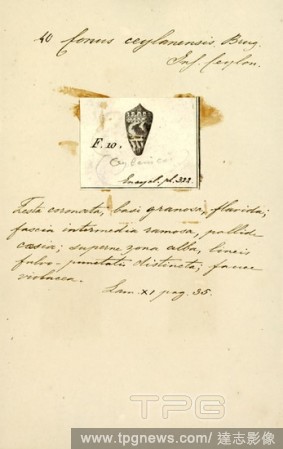 40 Conus ceylanensis Brug.
Inf. Ceylon.
F. 10.
Encycl. pl. 322.
Testa coronata, basi granosa, flavida;
fascia intermedia ramosa, pallide
cæsia; superne zona alba, lineis
fulvo-punctatis distincta; fauce
violacea.
Lam. XI pag. 35.
TPG
www.tpgnews.com/達志影像